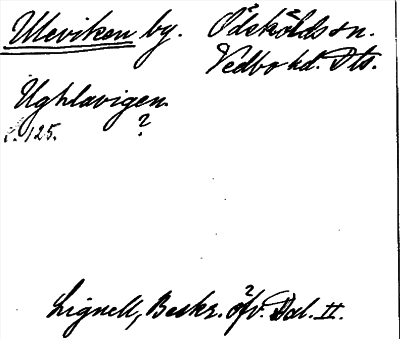 Uleviken by. Ödskölds sn.
Vedbo hd. Dls.
Ughlavigen
s. 125. ?
Lignell, Beskr. öfv. Dal. II.